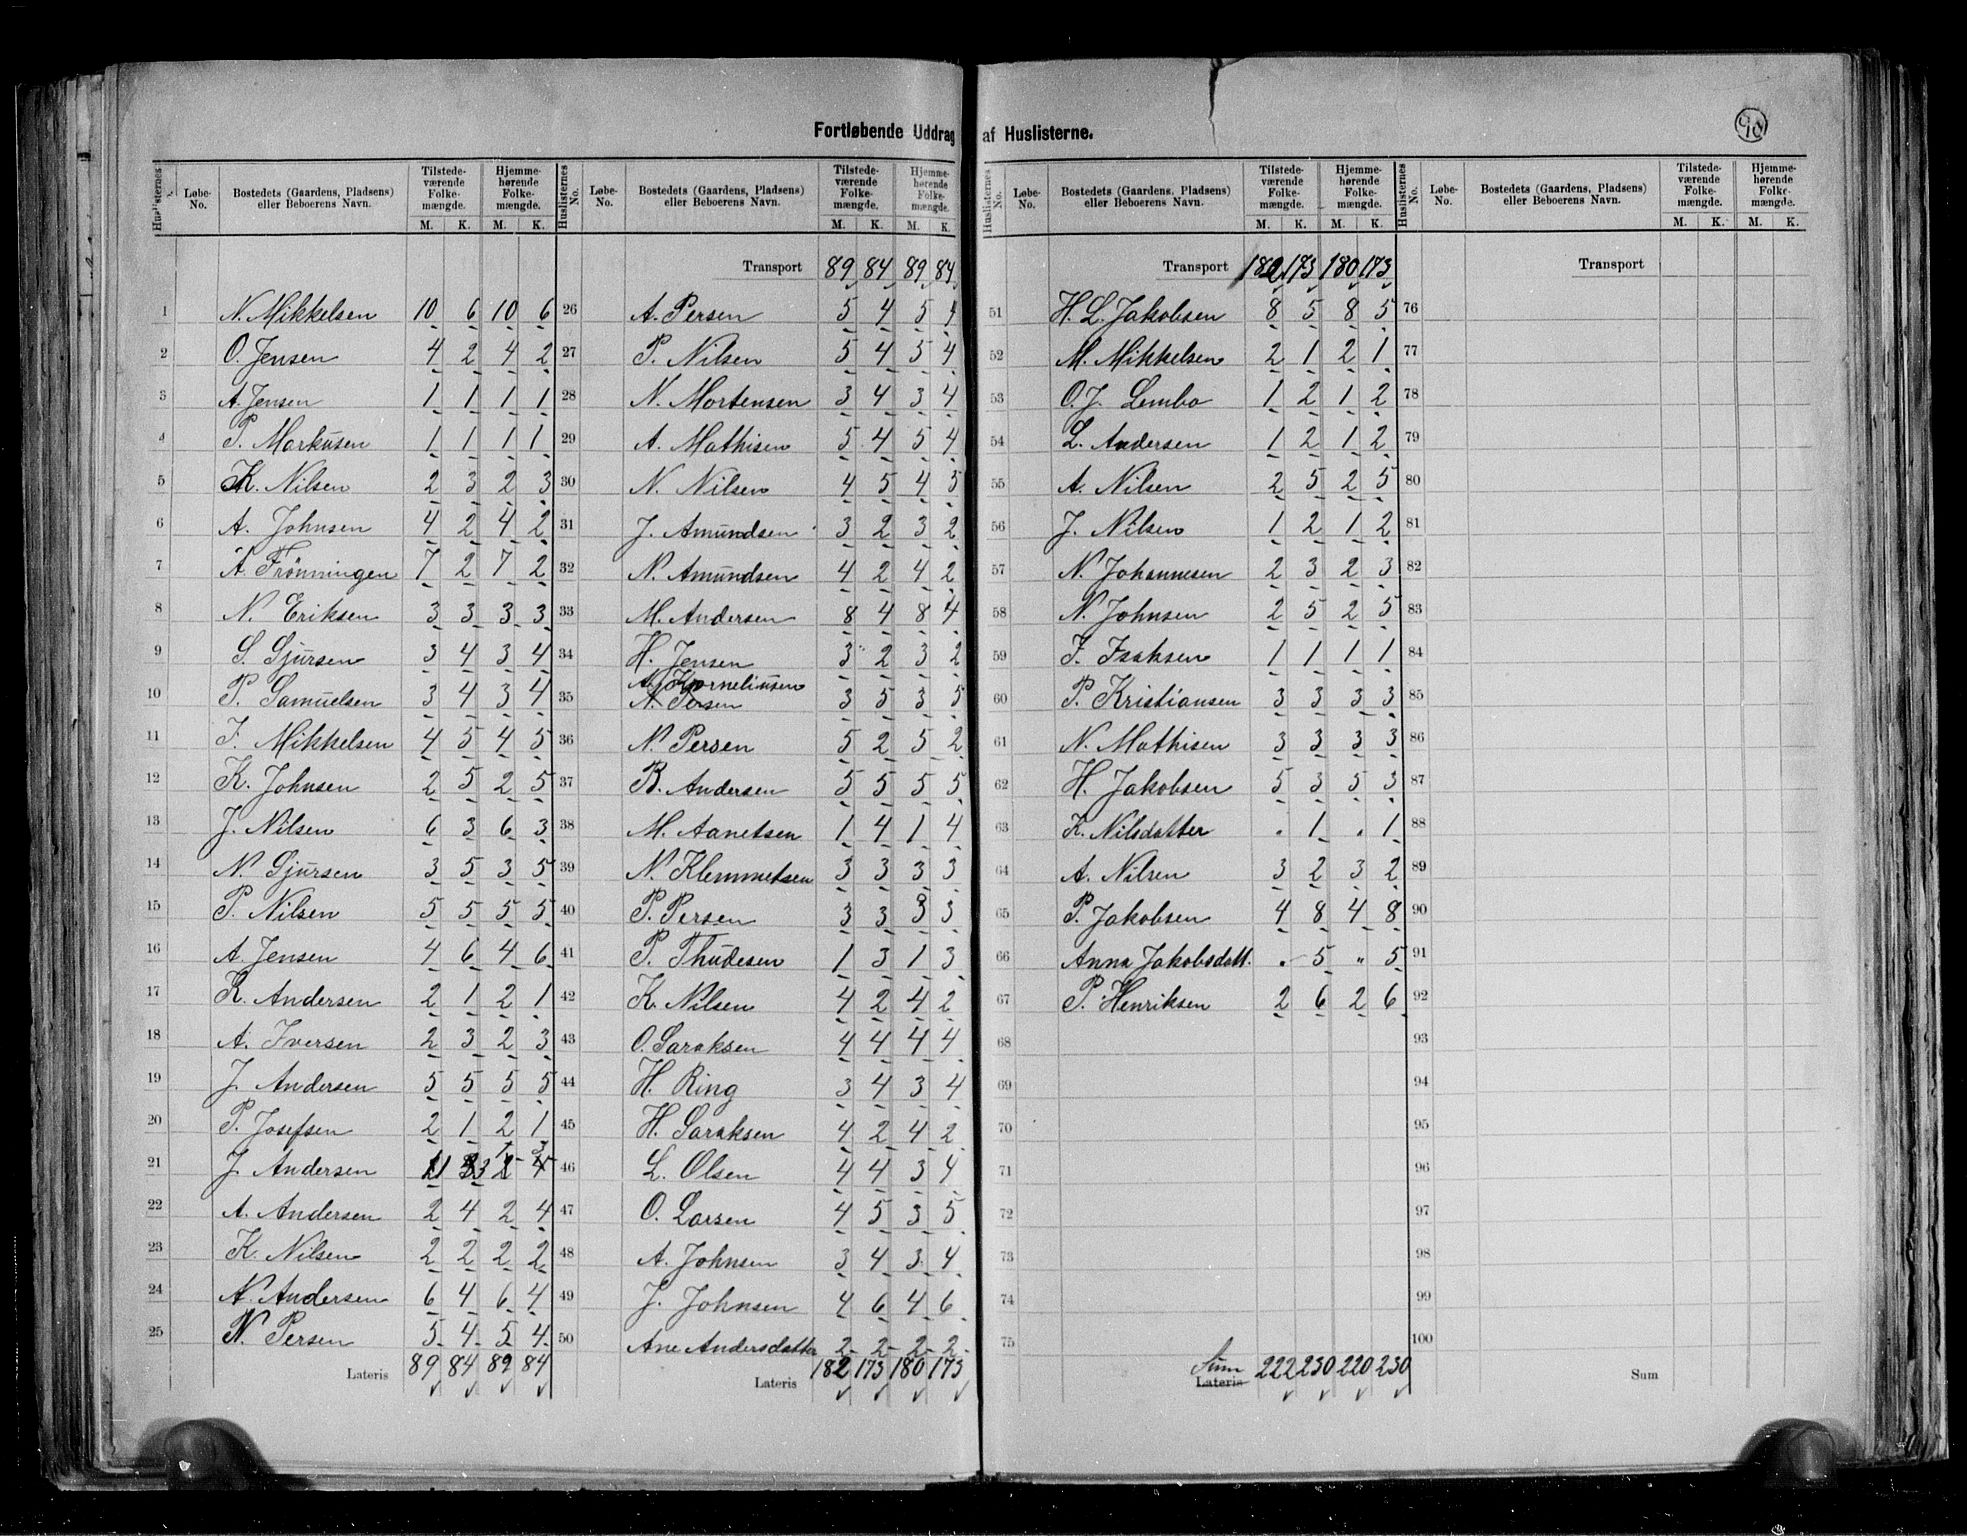 Fortløbende Uddrag af Huslisterne.
90
Huslisternes No. Løbe-No. Bostedets (Gaardens, Pladsens) eller Beboerens Navn. Tilstedeværende Folkemængde. M. K. Hjemmehørende Folkemængde. M. K.
1 N. Mikkelsen 10 6 10 6
2 O. Jensen 4 2 4 2
3 A. Jensen 1 1 1 1
4 P. Markusen 1 1 1 1
5 K. Nilsen 2 3 2 3
6 A. Johnsen 4 2 4 2
7 A. Frönningen 7 2 7 2
8 N. Eriksen 3 3 3 3
9 S. Sjursen 3 4 3 4
10 P. Samuelsen 3 4 3 4
11 I. Mikkelsen 4 5 4 5
12 K. Johnsen 2 5 2 5
13 J. Nilsen 6 3 6 3
14 N. Sjursen 3 5 3 5
15 P. Nilsen 5 5 5 5
16 A. Jensen 4 6 4 6
17 K. Andersen 2 1 2 1
18 A. Iversen 2 3 2 3
19 J. Andersen 5 5 5 5
20 P. Josefsen 2 1 2 1
21 J. Andersen 1 3 1 3
22 A. Andersen 2 4 2 4
23 K. Nilsen 2 2 2 2
24 N. Andersen 6 4 6 4
25 N. Persen 5 4 5 4
Lateris 89 84 89 84
Huslisternes No. Løbe-No. Bostedets (Gaardens, Pladsens) eller Beboerens Navn. Tilstedeværende Folkemængde. M. K. Hjemmehørende Folkemængde. M. K.
Transport 89 84 89 84
26 A. Persen 5 4 5 4
27 P. Nilsen 5 4 5 4
28 N. Mortensen 3 4 3 4
29 A. Mathisen 5 4 5 4
30 N. Nilsen 4 5 4 5
31 J. Amundsen 3 2 3 2
32 N. Amundsen 4 2 4 2
33 M. Andersen 8 4 8 4
34 H. Jensen 3 2 3 2
35 Korneliusen
N. Persen 3 5 3 5
36 N. Persen 5 2 5 2
37 B. Andersen 5 5 5 5
38 M. Aanetsen 1 4 1 4
39 N. Klemmetsen 3 3 3 3
40 P. Persen 3 3 3 3
41 P. Thudesen 1 3 1 3
42 K. Nilsen 4 2 4 2
43 O. Saraksen 4 4 4 4
44 H. Ring 3 4 3 4
45 H. Saraksen 4 2 4 2
46 L. Olsen 4 4 3 4
47 O. Larsen 4 5 3 5
48 A. Johnsen 3 4 3 4
49 J. Johnsen 4 6 4 6
50 Ane Andersdatter 2 2 2 2
Lateris 182 173 180 173
Huslisternes No. Løbe-No. Bostedets (Gaardens, Pladsens) eller Beboerens Navn. Tilstedeværende Folkemængde. M. K. Hjemmehørende Folkemængde. M. K.
Transport 182 173 180 173
51 H. L. Jakobsen 8 5 8 5
52 M. Mikkelsen 2 1 2 1
53 O. J. Lembo 1 2 1 2
54 L. Andersen 1 2 1 2
55 A. Nilsen 2 5 2 5
56 J. Nilsen 1 2 1 2
57 N. Johannesen 2 3 2 3
58 N. Johnsen 2 5 2 5
59 I. Isaksen 1 1 1 1
60 P. Kristiansen 3 3 3 3
61 N. Mathisen 3 3 3 3
62 H. Jakobsen 5 3 5 3
63 K. Nilsdatter . 1 . 1
64 A. Nilsen 3 2 3 2
65 P. Jakobsen 4 8 4 8
66 Anna Jakobsdatt. . 5 " 5
67 P. Henriksen 2 6 2 6
68
69
70
71
72
73
74
75
Sum
Lateris 222 230 220 230
Huslisternes No. Løbe-No. Bostedets (Gaardens, Pladsens) eller Beboerens Navn. Tilstedeværende Folkemængde. M. K. Hjemmehørende Folkemængde. M. K.
Transport
76
77
78
79
80
81
82
83
84
85
86
87
88
89
90
91
92
93
94
95
96
97
98
99
100
Sum